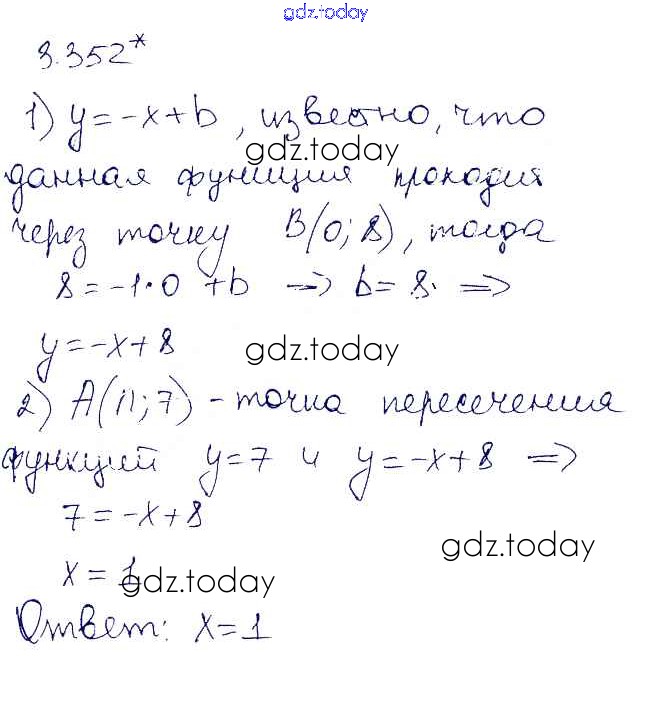 gdz.today
3.352*
1) y=-x+b, известно, что
gdz.today
данная функция проходит
через точку B(0; 8), тогда
8=-1·0+b → b=8. ⇒
y=-x+8
gdz.today
2) A(11;7) - точка пересечения
функций y=7 и y=-x+8 ⇒
7=-x+8
gdz.today
x=1
gdz.today
Ответ: x=1